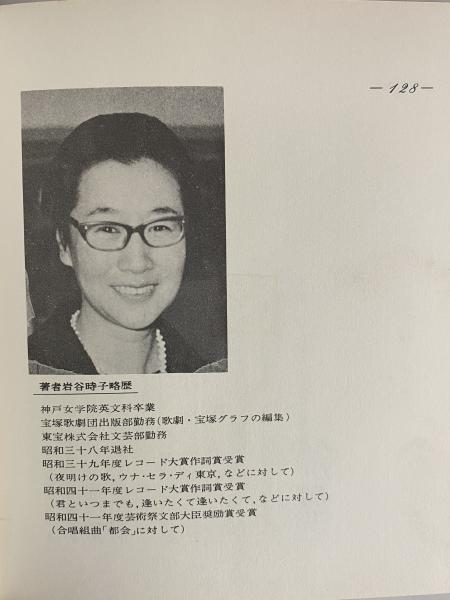 — 128 —
著者岩谷時子略歴
神戸女学院英文科卒業
宝塚歌劇団出版部勤務(歌劇・宝塚グラフの編集)
東宝株式会社文芸部勤務
昭和三十八年退社
昭和三十九年度レコード大賞作詞賞受賞
(夜明けの歌,ウナ・セラ・ディ東京,などに対して)
昭和四十一年度レコード大賞作詞賞受賞
(君といつまでも,逢いたくて逢いたくて,などに対して)
昭和四十一年度芸術祭文部大臣奨励賞受賞
(合唱組曲「都会」に対して)